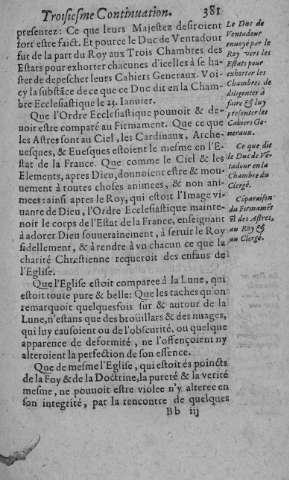 Troisiesme Continuation. 381
presentez: Ce que leurs Majestez desiroient
fort estre faict. Et pource le Duc de Ventadour
fut de la part du Roy aux Trois Chambres des
Estats pour exhorter chacunes d'icelles à se ha-
ster de depescher leurs Cahiers Generaux. Voicy
la substāce de ce que ce Duc dit en la Cham-
bre Ecclesiastique le 24. Ianuier.
Que l'Ordre Ecclesiastique pouuoit & de-
uoit estre comparé au Firmament. Que ce que
les Astres sont au Ciel, les Cardinaux, Arche-
uesques, & Euesques estoient le mesme en l'E-
stat de la France. Que comme le Ciel & les
Elements, apres Dieu, donnoient estre & mou-
uement à toutes choses animees, & non ani-
mees: ainsi apres le Roy, qui estoit l'Image vi-
uante de Dieu, l'Ordre Ecclesiastique mainte-
noit le corps de l'Estat de la France, enseignant
à adorer Dieu souuerainement, à seruir le Roy
fidellement, & à rendre à vn chacun ce que la
charité Chrestienne requeroit des enfans de
l'Eglise.
Que l'Eglise estoit comparee à la Lune, qui
estoit toute pure & belle: Que les taches qu'on
remarquoit quelquesfois sur & autour de la
Lune, n'estans que des broüillars & des nuages,
qui luy causoient ou de l'obscurité, ou quelque
apparence de deformité, ne l'offençoient ny
alteroient la perfection de son essence.
Que de mesme l'Eglise, qui estoit és poincts
de la Foy & de la Doctrine, la pureté & la verité
mesme, ne pouuoit estre violee n'y alteree en
son integrité, par la rencontre de quelques
Bb iij
Le Duc de
Ventadour
enuoyé par le
Roy vers les
Estats pour
exhorter les
Chambres de
diligenter à
faire & luy
presenter les
Cahiers Ge-
neraux.
Ce que dit
le Duc de Vē-
tadour en la
Chambre du
Clergé.
Cōparaison
du Firmamēt
& des Astres,
au Roy &
au Clergé.